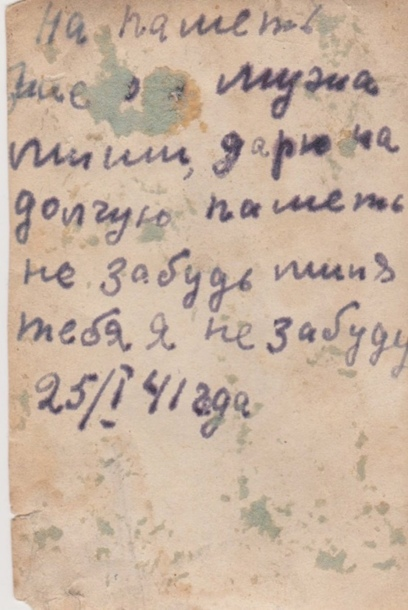 На паметь
от мужа
миши, дарю на
долгую паметь
не забудь миня
тебя я не забуду
25/I 41 года